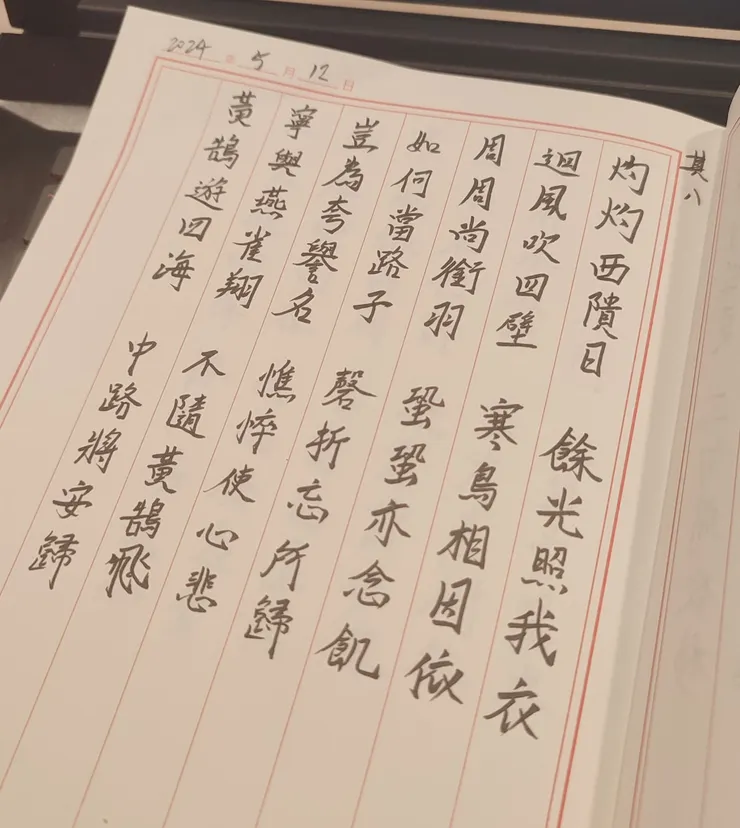 2024年5月12日
其八
灼灼西隤日 餘光照我衣
迴風吹四壁 寒鳥相因依
周周尚銜羽 蛩蛩亦念飢
如何當路子 磬折忘所歸
豈為夸譽名 憔悴使心悲
寧與燕雀翔 不隨黃鵠飛
黃鵠遊四海 中路將安歸